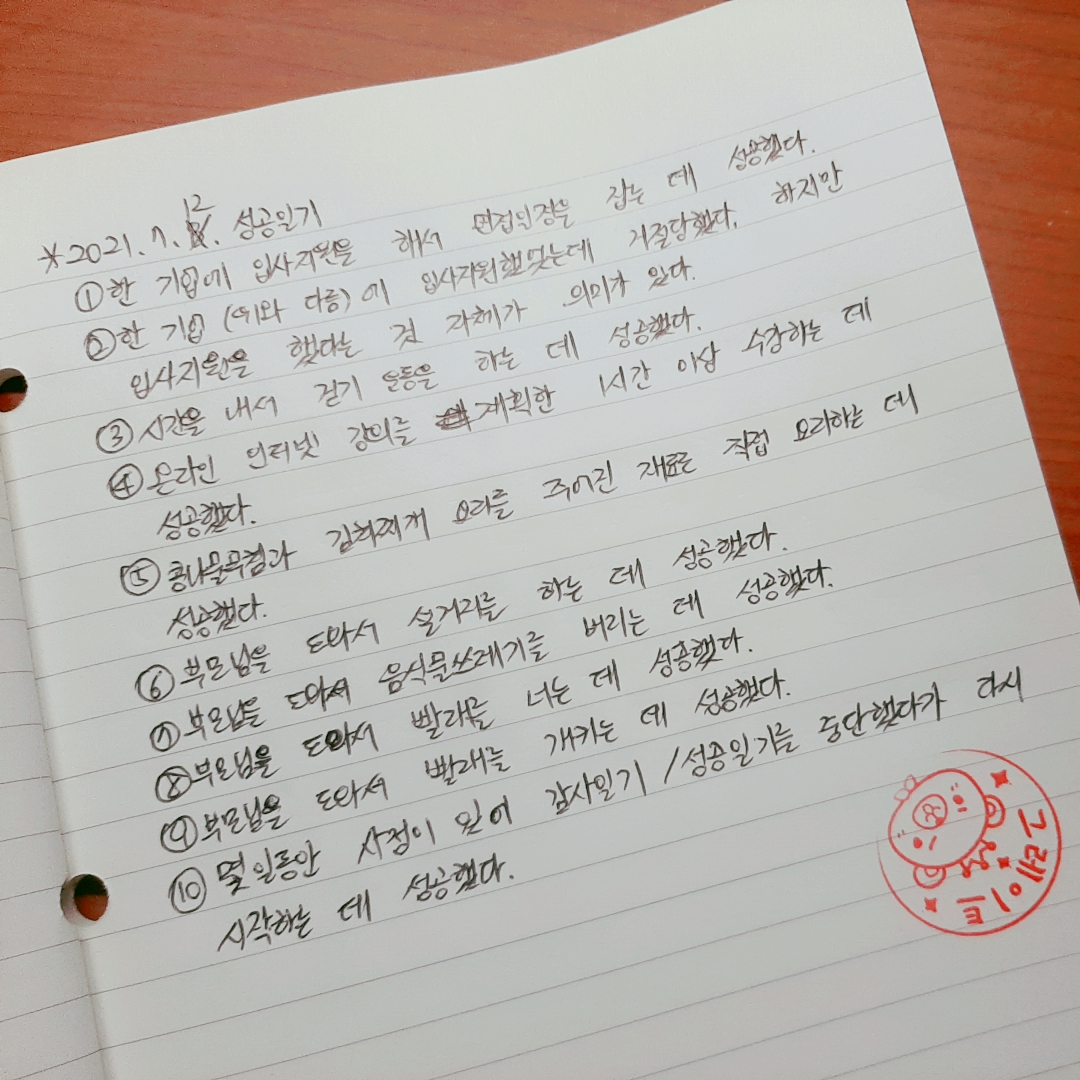 *2021. 7. 12. 성공일기
① 한 기업에 입사지원을 해서 면접일정을 잡는 데 성공했다.
② 한 기업 (위와 다름)에 입사지원했었는데 거절당했다. 하지만
입사지원을 했다는 것 자체가 의미가 있다.
③ 시간을 내서 걷기 운동을 하는 데 성공했다.
④ 온라인 인터넷 강의를 계획한 1시간 이상 수강하는 데
성공했다.
⑤ 콩나물무침과 김치찌개 요리를 주어진 재료로 직접 요리하는 데
성공했다.
⑥ 부모님을 도와서 설거지를 하는 데 성공했다.
⑦ 부모님을 도와서 음식물쓰레기를 버리는 데 성공했다.
⑧ 부모님을 도와서 빨래를 너는 데 성공했다.
⑨ 부모님을 도와서 빨래를 개키는 데 성공했다.
⑩ 몇일동안 사정이 있어 감사일기/성공일기를 중단했다가 다시
시작하는 데 성공했다.
그레이트